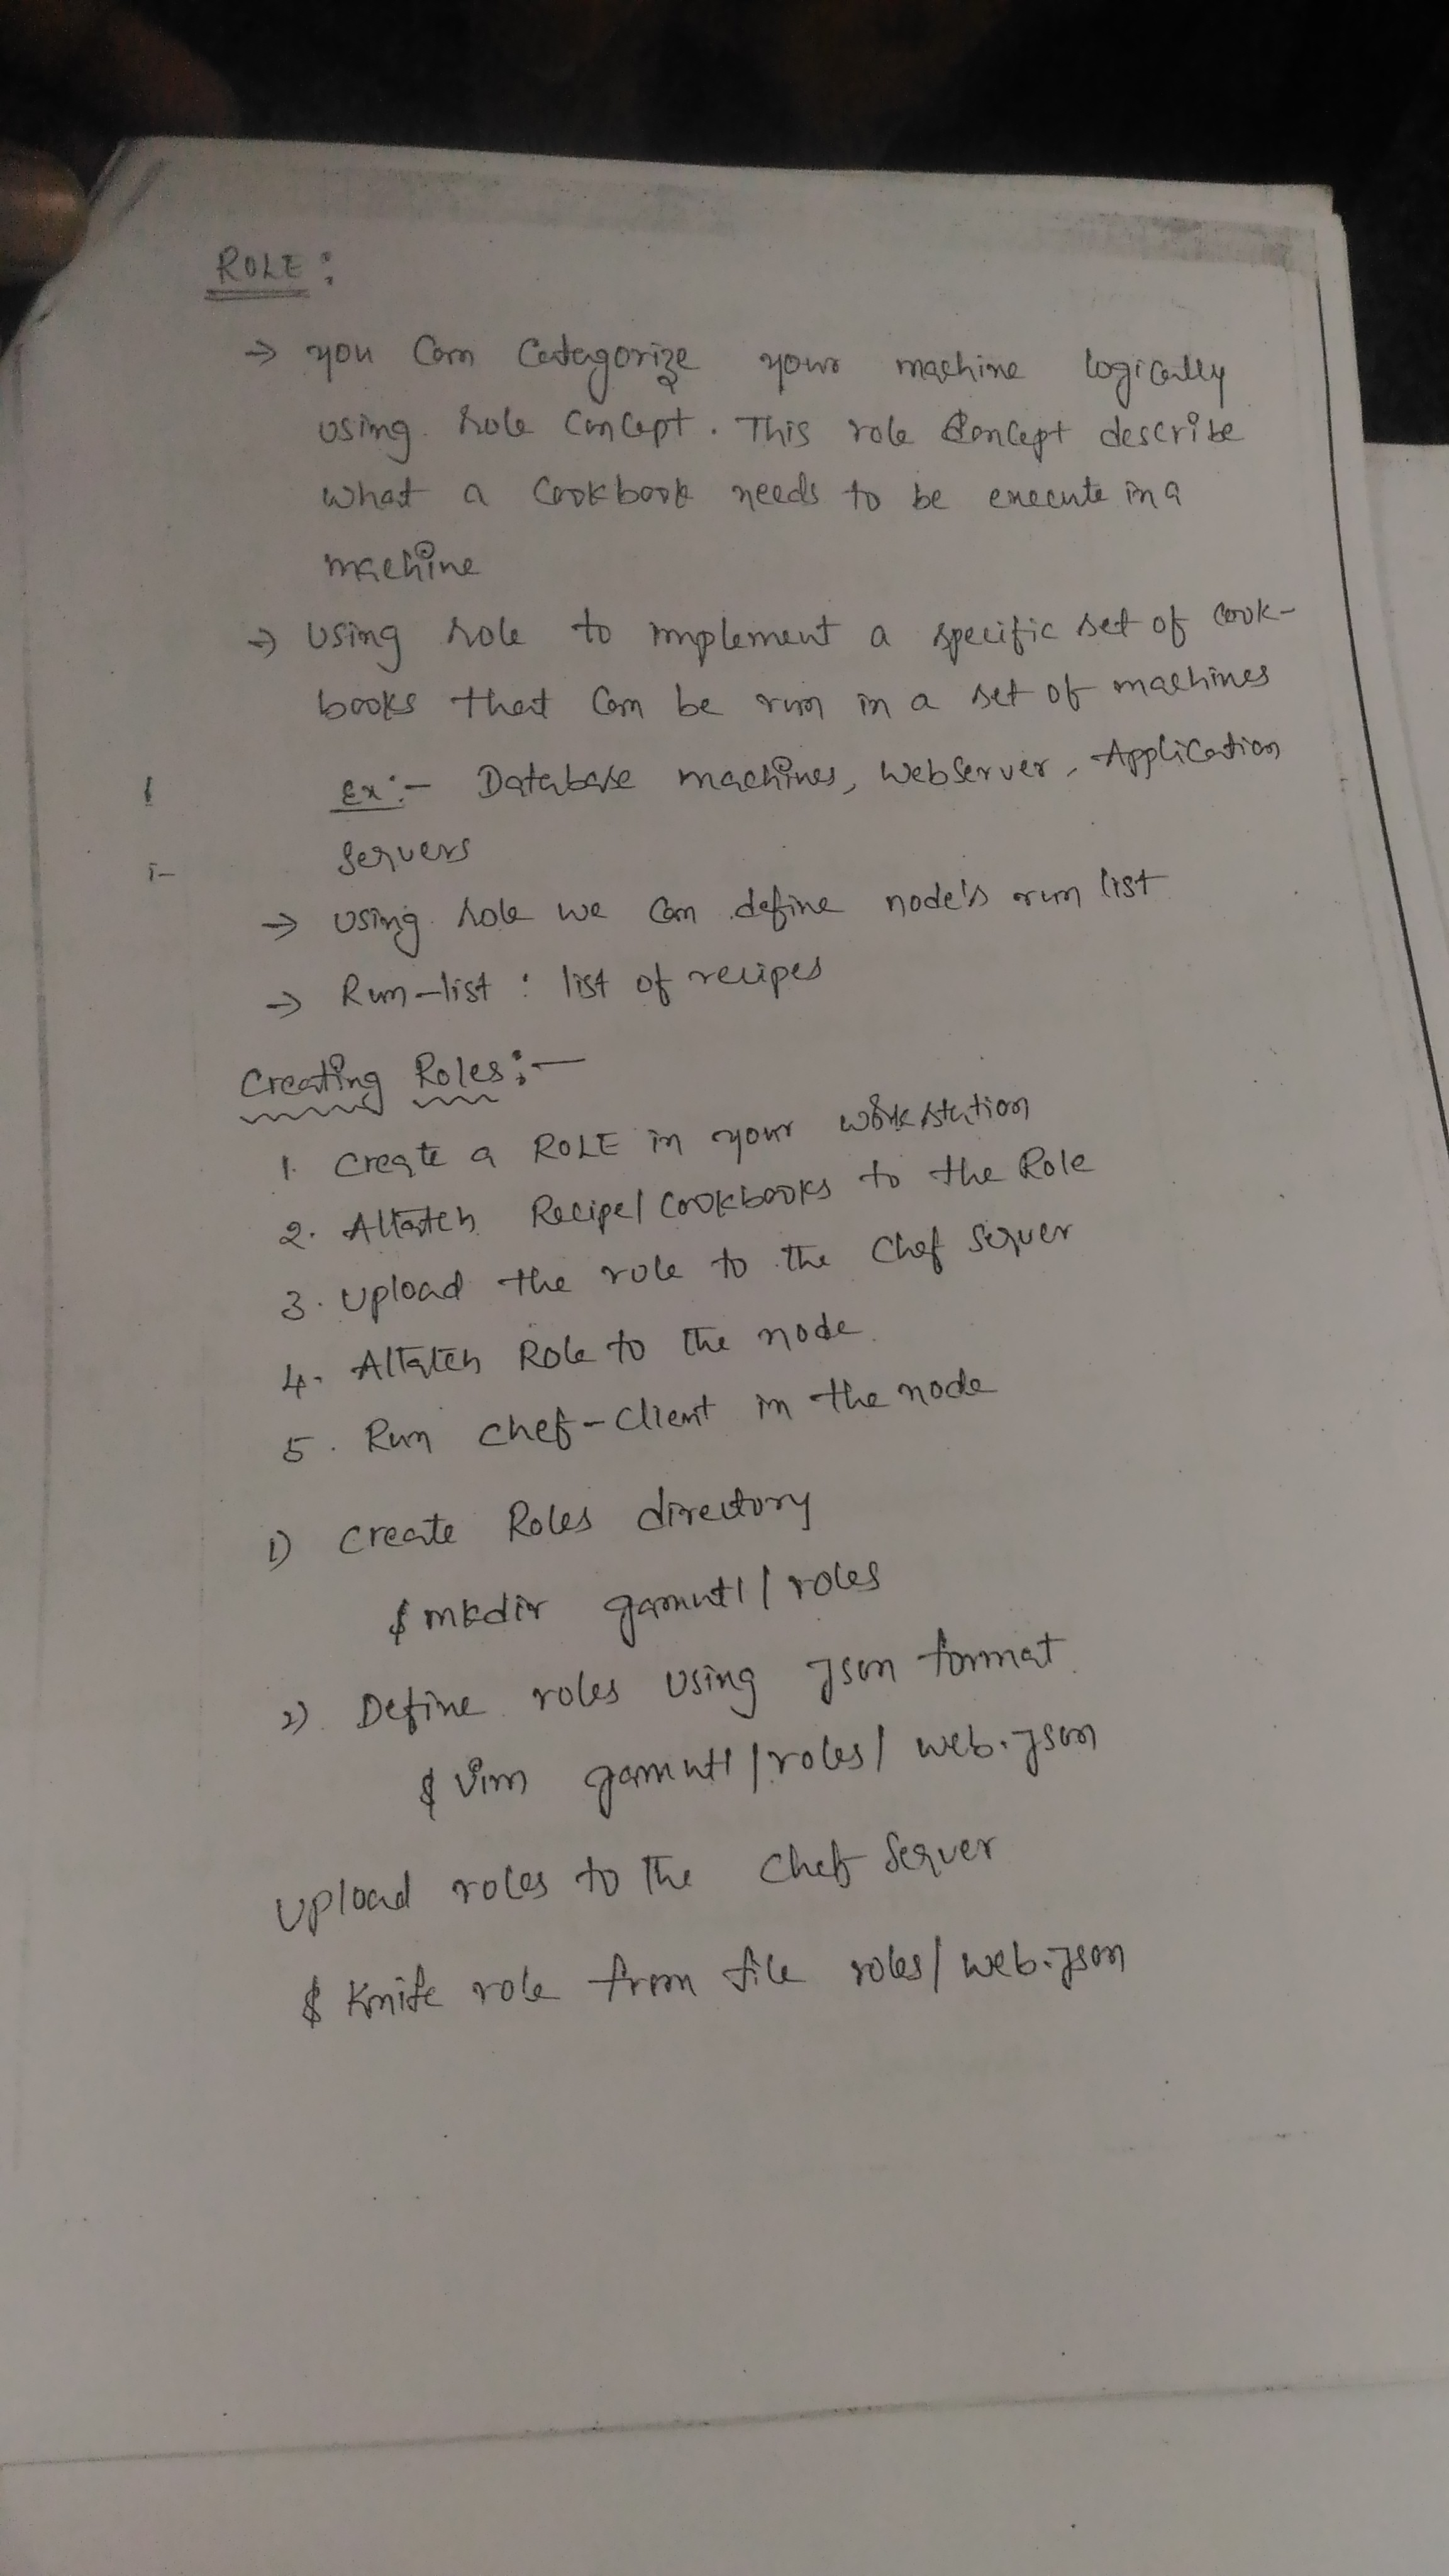 ROLE :
→ you can categorize your machine logically
using role concept. This role concept describe
what a cookbook needs to be execute in a
machine
→ Using role to implement a specific set of cook-
books that can be run in a set of machines
Ex:- Database machines, Webserver, Application
Servers
→ using role we can define node's run list
→ Run-list : list of recipes
Creating Roles:-
1. Create a ROLE in your workstation
2. Attatch Recipe/cookbooks to the Role
3. Upload the role to the Chef server
4. Attatch Role to the node
5. Run chef-client in the node
1) Create Roles directory
$ mkdir gamut1/roles
2) Define roles using json format
$ vim gamut1/roles/web.json
Upload roles to the Chef Server
$ Knife role from file roles/web.json